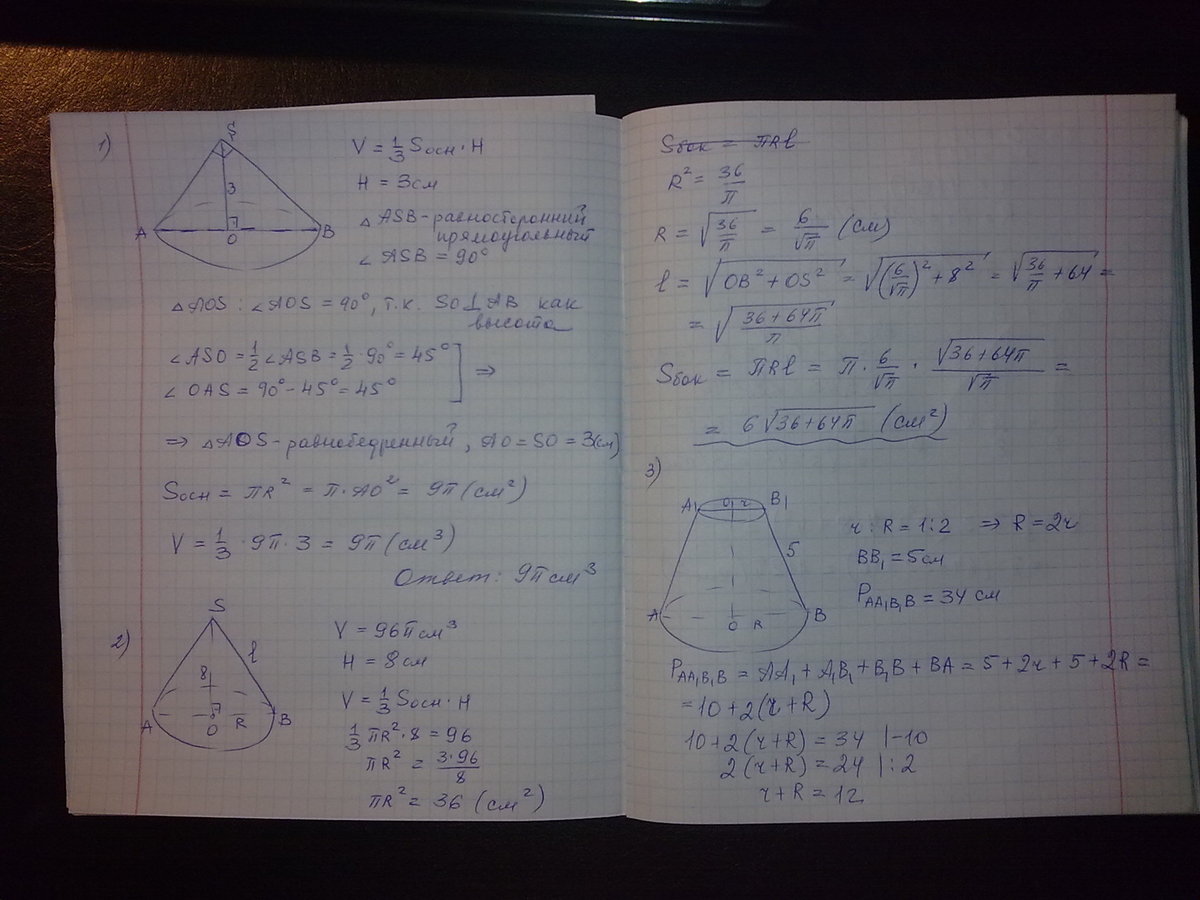 1)
S
3
A
O
B
V = 1/3 Sосн · H
H = 3см
△ ASB - равносторонний
прямоугольный
∠ ASB = 90°
△AOS : ∠AOS = 90°, т.к. SO ⊥ AB как
высота
∠ASO = 1/2 ∠ASB = 1/2 · 90° = 45°
∠ OAS = 90° - 45° = 45° ] ⇒
⇒ △AOS - равнобедренный, AO = SO = 3(см)
Sосн = πR² = π · AO² = 9π (см²)
V = 1/3 · 9π · 3 = 9π (см³)
Ответ: 9π см³
2)
S
8
l
A
O
R
B
V = 96π см³
H = 8см
V = 1/3 Sосн · H
1/3 πR² · 8 = 96
πR² = 3·96/8
πR² = 36 (см²)
Sбок = πRl
R² = 36/π
R = √(36/π) = 6/√π (см)
l = √(OB² + OS²) = √((6/√π)² + 8²) = √(36/π + 64) =
= √((36 + 64π)/π)
Sбок = πRl = π · 6/√π · √(36 + 64π)/√π =
= 6√(36 + 64π) (см²)
3)
A₁
O₁
r
B₁
5
A
O
R
B
r : R = 1 : 2 ⇒ R = 2r
BB₁ = 5см
PAA₁B₁B = 34 см
PAA₁B₁B = AA₁ + A₁B₁ + B₁B + BA = 5 + 2r + 5 + 2R =
= 10 + 2(r + R)
10 + 2(r + R) = 34 | -10
2(r + R) = 24 | : 2
r + R = 12